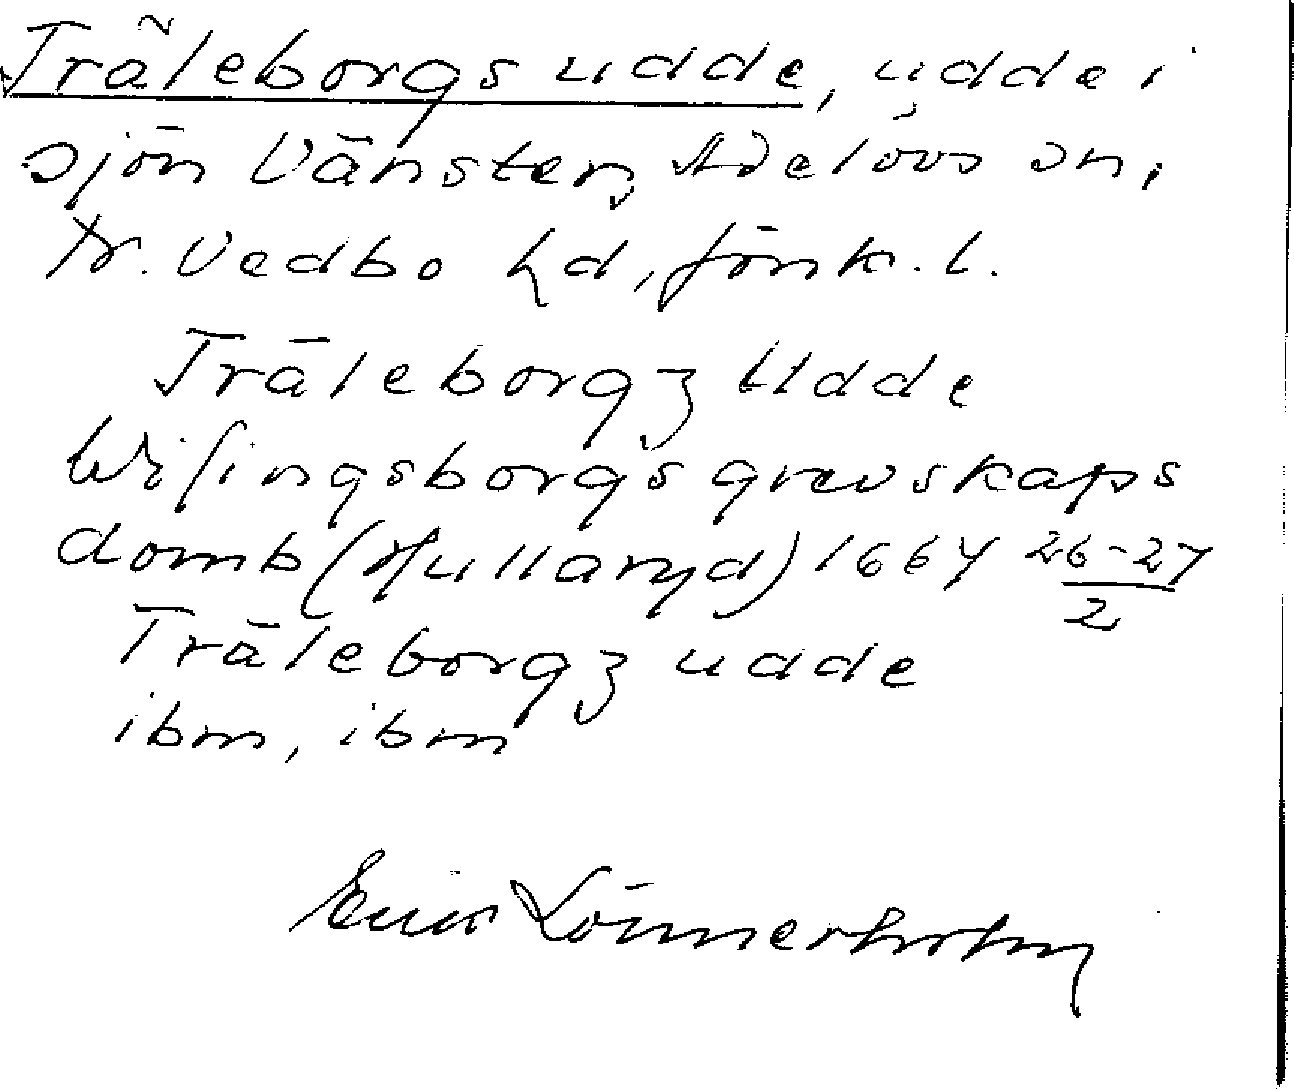 Träleborgs udde, udde i
sjön Vänstern, Adelövs sn,
N. Vedbo hd, Jönk. l.
Träleborgz Udde
Wisingsborgs grevskaps
domb (Hullaryd) 1667 26-27/2
Träleborgz udde
ibm, ibm
Erik Lönnerholm